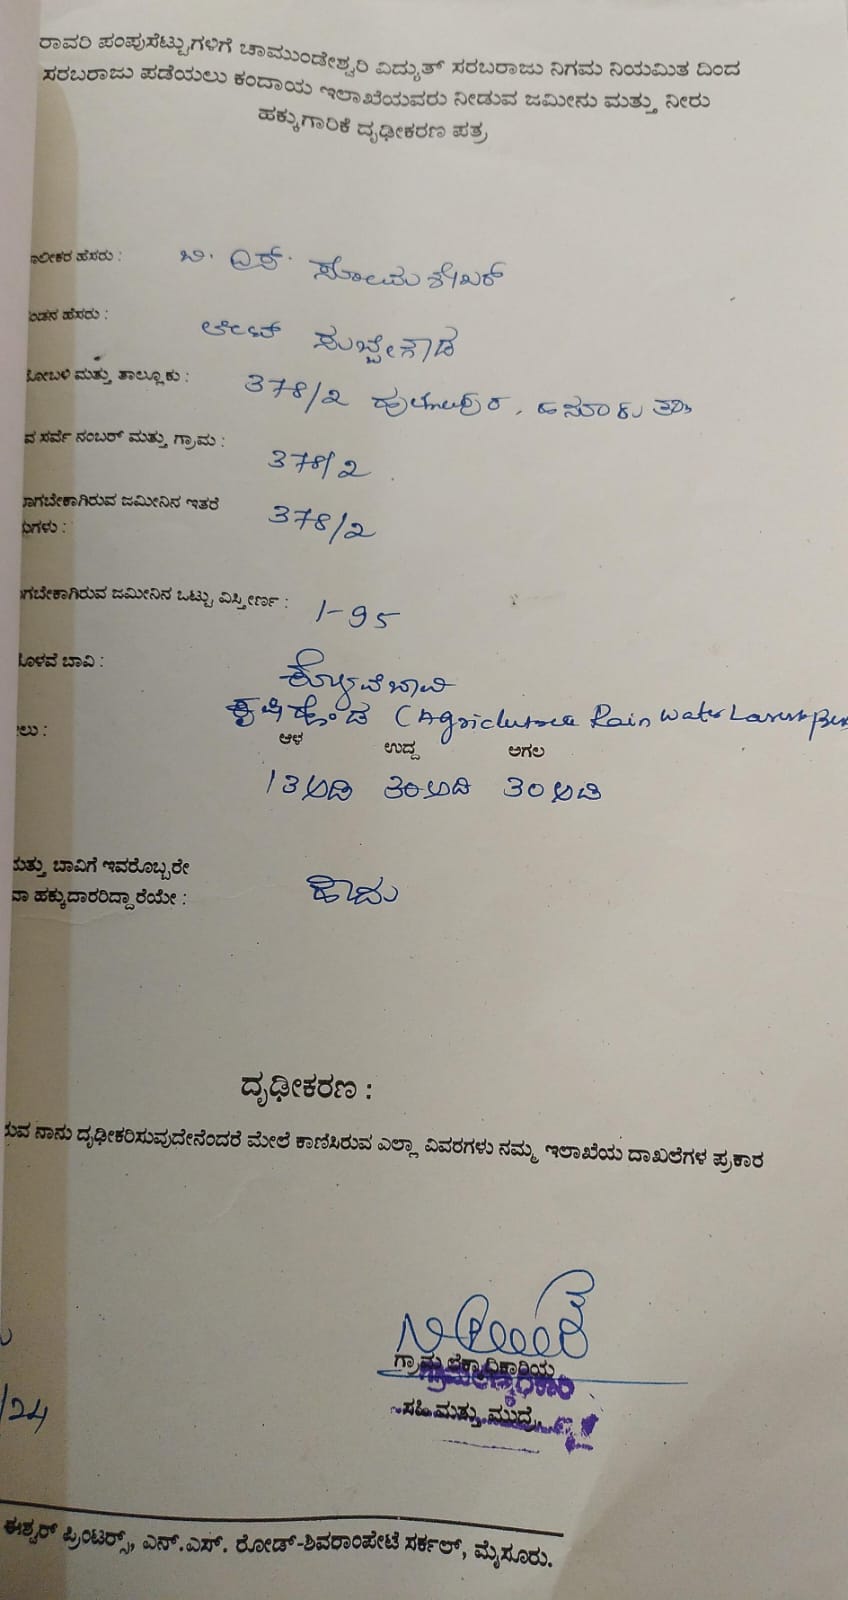 ರಾವರಿ ಪಂಪುಸೆಟ್ಟುಗಳಿಗೆ ಚಾಮುಂಡೇಶ್ವರಿ ವಿದ್ಯುತ್ ಸರಬರಾಜು ನಿಗಮ ನಿಯಮಿತ ದಿಂದ
ಸರಬರಾಜು ಪಡೆಯಲು ಕಂದಾಯ ಇಲಾಖೆಯವರು ನೀಡುವ ಜಮೀನು ಮತ್ತು ನೀರು
ಹಕ್ಕುಗಾರಿಕೆ ದೃಢೀಕರಣ ಪತ್ರ
ಾಲೀಕರ ಹೆಸರು : ಬಿ. ಎಸ್. ಸೋಮಶೇಖರ್
ಂಡನ ಹೆಸರು : ಲೇಟ್ ಸುಬ್ಬೇಗೌಡ
ಹೋಬಳಿ ಮತ್ತು ತಾಲ್ಲೂಕು : 378/2 ಹನೂರು
ವ ಸರ್ವೆ ನಂಬರ್ ಮತ್ತು ಗ್ರಾಮ : 378/2
ಾಗಬೇಕಾಗಿರುವ ಜಮೀನಿನ ಇತರೆ 378/2
ುಗಳು :
ಾಗಬೇಕಾಗಿರುವ ಜಮೀನಿನ ಒಟ್ಟು ವಿಸ್ತೀರ್ಣ : 1-95
ೊಳವೆ ಬಾವಿ : ಕೊಳವೆಬಾವಿ
ಲು : ಕೃಷಿಹೊಂಡ Rain Water
ಆಳ ಉದ್ದ ಅಗಲ
13 ಅಡಿ 30 ಅಡಿ 30 ಅಡಿ
ಮತ್ತು ಬಾವಿಗೆ ಇವರೊಬ್ಬರೇ
ವಾ ಹಕ್ಕುದಾರರಿದ್ದಾರೆಯೇ : ಹೌದು
ದೃಢೀಕರಣ :
ುವ ನಾನು ದೃಢೀಕರಿಸುವುದೇನೆಂದರೆ ಮೇಲೆ ಕಾಣಿಸಿರುವ ಎಲ್ಲಾ ವಿವರಗಳು ನಮ್ಮ ಇಲಾಖೆಯ ದಾಖಲೆಗಳ ಪ್ರಕಾರ
ಗ್ರಾಮ ಲೆಕ್ಕಾಧಿಕಾರಿಯ
ಸಹಿ ಮತ್ತು ಮುದ್ರೆ
/24
ಈಶ್ವರ್ ಪ್ರಿಂಟರ್ಸ್, ಎನ್.ಎಸ್. ರೋಡ್-ಶಿವರಾಂಪೇಟೆ ಸರ್ಕಲ್, ಮೈಸೂರು.